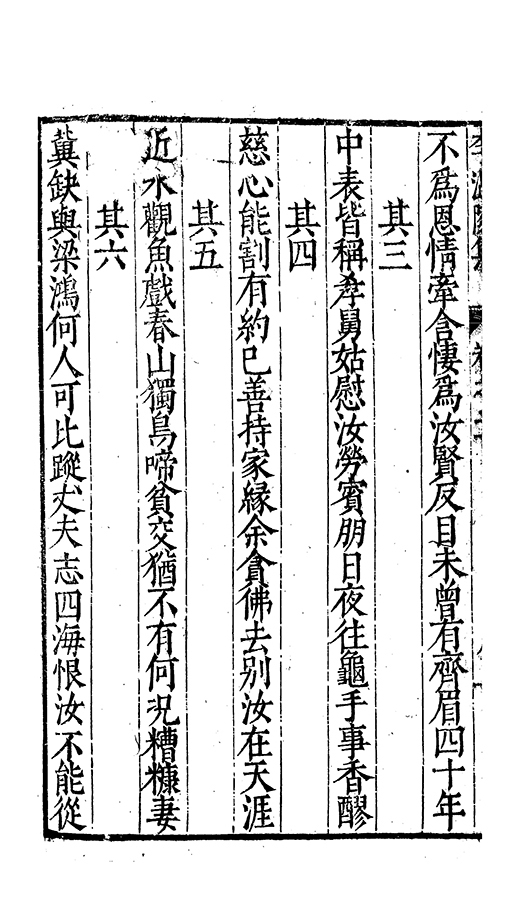 不爲恩情牽含悽爲汝賢反目未曾有齊眉四十年
其三
中表皆稱孝舅姑慰汝勞賓朋日夜往龜手事香醪
其四
慈心能割有約己善持家緣余貪佛去別汝在天涯
其五
近水觀魚戲春山獨鳥啼貧交猶不有何況糟糠妻
其六
冀缺與梁鴻何人可比蹤丈夫志四海恨汝不能從